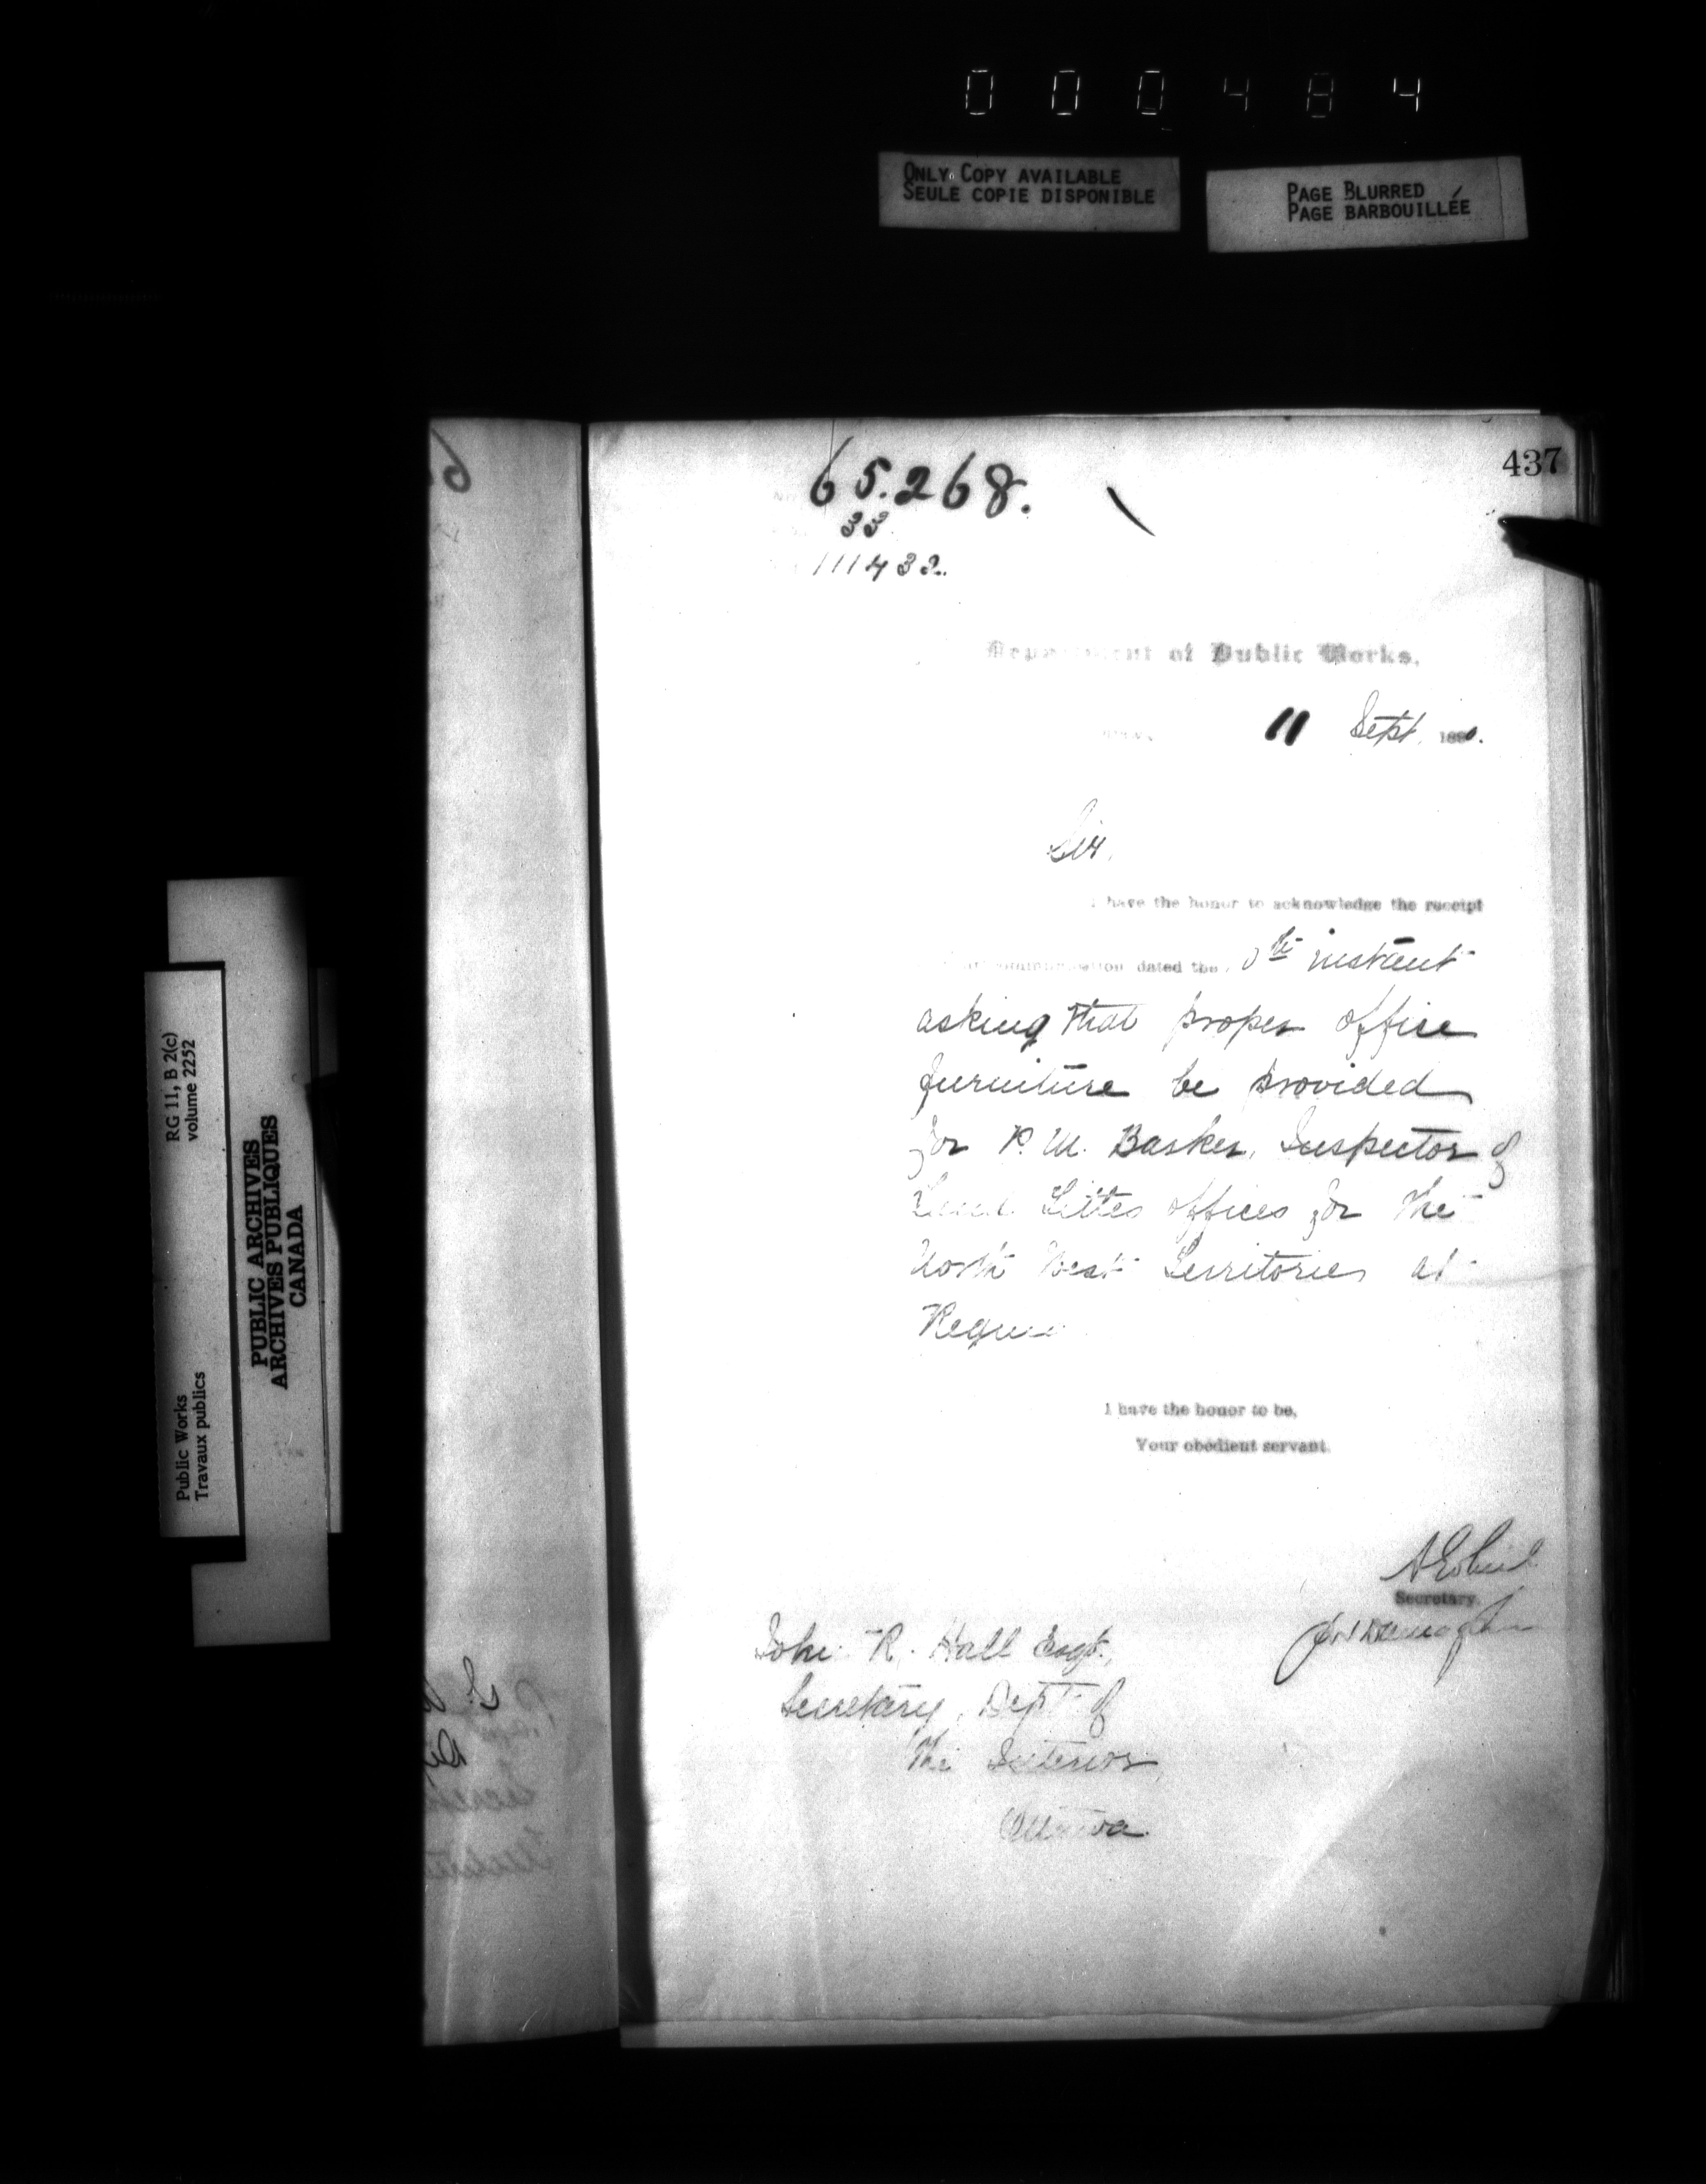 000484
ONLY COPY AVAILABLE
SEULE COPIE DISPONIBLE
PAGE BLURRED
PAGE BARBOUILLÉE
437
65.268.
33
111432.
Department of Public Works.
11 Sept. 1890.
Sir,
I have the honor to acknowledge the receipt
communication dated the th instant
asking that proper office
furniture be provided
for P. M. Barker, Inspector of
Titles offices for the
North West Territories at
Regina
I have the honor to be,
Your obedient servant.
Secretary.
John R. Hall Esqr.,
Secretary, Dept of
The Interior,
Ottawa.
RG 11, B 2(c)
volume 2252
Public Works
Travaux publics
PUBLIC ARCHIVES
ARCHIVES PUBLIQUES
CANADA